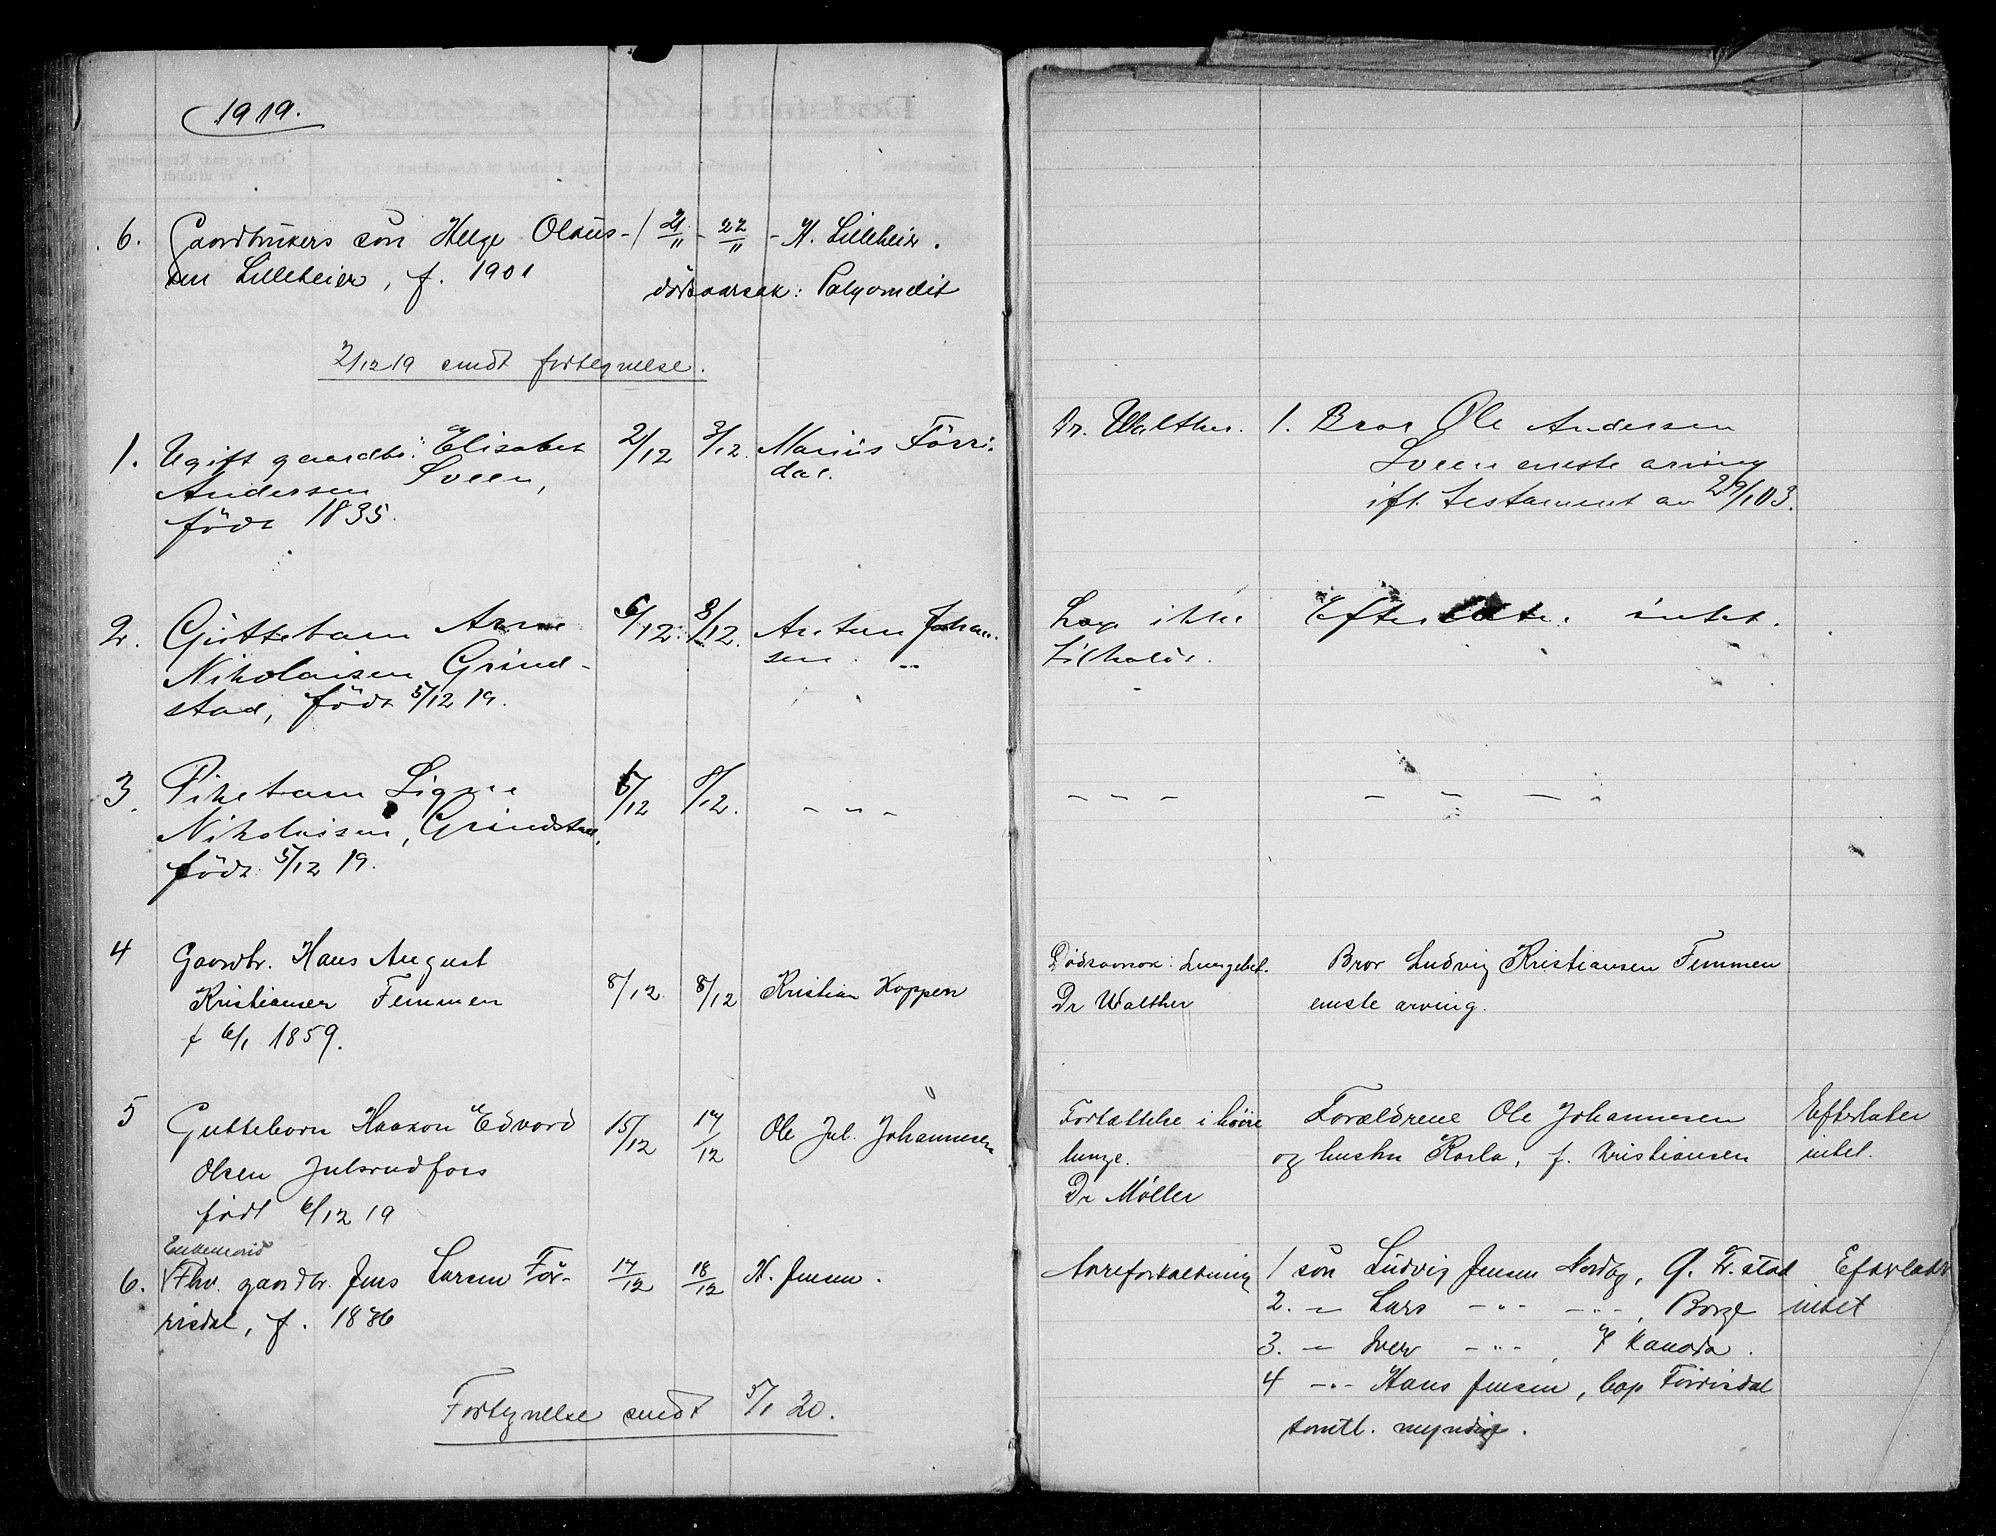 1919.
6. Gaardbrukers sön Helge Olaus- 21/11 - 22/11 - H. Lilleheier.
sen Lilleheier, f. 1901 dödsaarsak:
2/12 19 sendt fortegnelse.
1. Ugift gaardbr: Elisabet 2/12 3/12. Marius Förris-
Andersen Sveen, dal.
födt 1835.
2. Guttebarn Arne 6/12. 8/12. Anton Johan-
Nikolaisen Grind- sen
stad, födt 5/12 19.
3. Pikebarn Signe 6/12 8/12. - " -
Nikolaisen, Grindstad,
födt 5/12 19.
4 Gaardbr. Hans August
Kristiansen Femmen 8/12 8/12 Kristian Koppen
f 6/1 1859.
5 Gutteborn Haakon Edvard 15/12 17/12 Ole Jul. Johannesen
Olsen Julsrudfoss
födt 6/12 19
Enkemand
6. Fhv. gaardbr. Jens Larsen För- 17/12 18/12 H. Jensen.
risdal, f. 1836
Fortegnelse sendt 5/1 20.
Dr. Walther. 1. Bror Ole Andersen
Sveen eneste arving
ifl. testament av 29/1 03.
Læge ikke Efterlate. intet.
tilkaldt.
- - - - - -
Dödsaarsak: Lungebet. Bror Ludvig Kristiansen Femmen
Dr Walther eneste arving.
Fortættelse i höire Forældrene Ole Johannesen Efterlater
lunge. og hustru Karla, f. Kristiansen intet.
Dr Møller
Aareforkalkning 1 sön Ludvig Jensen Nordby, G. Fr.stad Efterlater
2. - Lars - " - - " -, Borge intet
3. - Iver - " - , Kanada.
4 - " - Hans Jensen, Förrisdal
samtl. myndige.